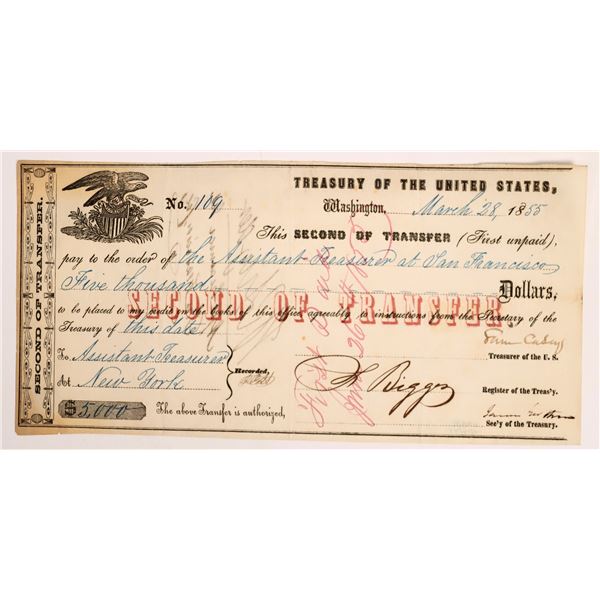 SECOND OF TRANSFER.
TREASURY OF THE UNITED STATES,
No. 109
Washington, March 28, 1855
This SECOND OF TRANSFER (First unpaid),
pay to the order of the Assistant Treasurer at San Francisco
Five thousand Dollars,
SECOND OF TRANSFER
to be placed to my credit on the books of this office agreeably to instructions from the Secretary of the
Treasury of this date.
Treasurer of the U. S.
To Assistant Treasurer
At New York
Recorded,
Biggs
Register of the Treas'y.
$5,000
The above Transfer is authorized,
Sec'y of the Treasury.